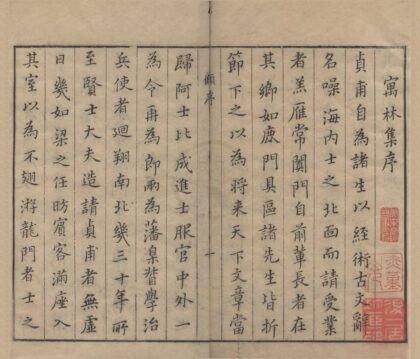 寓林集序
貞甫自為諸生以經術古文辭
名噪海內士之北面而請受業
者羔雁常闐門自前輩長者在
其鄉如鹿門具區諸先生皆折
節下之以為將来天下文章當
顧序
一
歸阿士比成進士服官中外一
為令再為郎兩為藩臬督學治
兵使者廻翔南北幾三十年所
至賢士大夫造請貞甫者無虛
日幾如梁之任昉賓客滿座入
其室以為不翅游龍門者士之